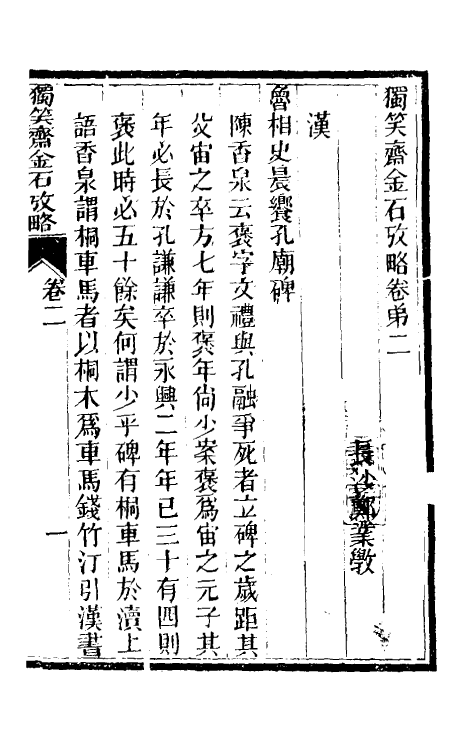 獨笑齋金石攷略卷弟二
長沙鄭業斆
漢
魯相史晨饗孔廟碑
陳香泉云褒字文禮與孔融爭死者立碑之歲距其
父宙之卒方七年則褒年尙少案褒爲宙之元子其
年必長於孔謙謙卒於永興二年年已三十有四則
褒此時必五十餘矣何謂少乎碑有桐車馬於瀆上
語香泉謂桐車馬者以桐木爲車馬錢竹汀引漢書
獨笑齋金石攷略
卷二
一